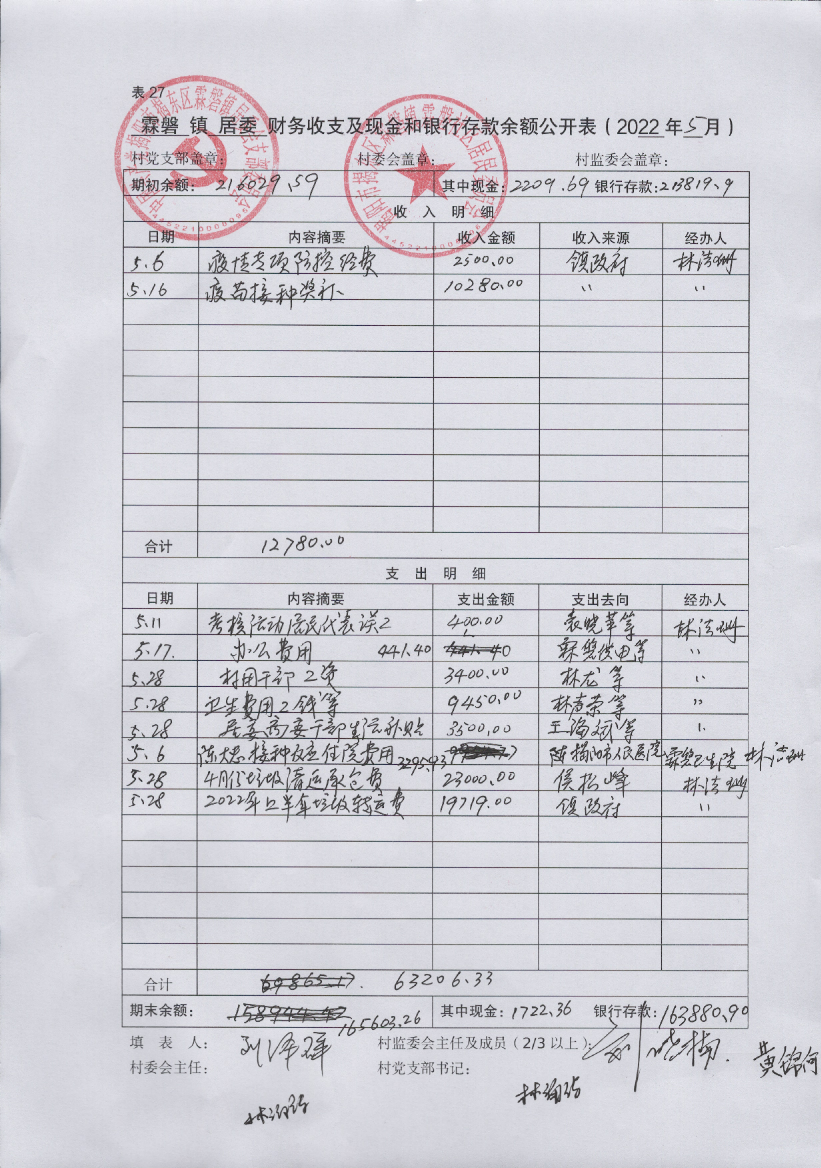 表 27
霖磐 镇 居委 财务收支及现金和银行存款余额公开表（2022 年 5 月）
村党支部盖章： 村委会盖章： 村监委会盖章：
期初余额： 216029.59 其中现金：2209.69 银行存款：213819.9
收 入 明 细
日期 内容摘要 收入金额 收入来源 经办人
5.6 疫情专项防控经费 2500.00 镇政府 林洁
5.16 疫苗接种奖补 10280.00 〃 〃
合计 12780.00
支 出 明 细
日期 内容摘要 支出金额 支出去向 经办人
5.11 考核活动居民代表误工 400.00 袁晓苹等 林洁
5.17. 办公费用 441.40 霖磐供电等 〃
5.28 村用干部工资 3400.00 林龙等 〃
5.28 卫生费用工钱等 9450.00 林春荣等 〃
5.28 居委两委干部生活补贴 3500.00 王海斌等 〃
5.6 接种反应住院费用 3295.93 揭阳市人民医院 霖磐卫生院 林洁
5.28 4月份垃圾清运承包费 23000.00 侯松峰 林洁
5.28 2022年上半年垃圾转运费 19719.00 镇政府 〃
合计 69865.17. 63206.33
期末余额： 158944.42 165603.26 其中现金：1722.36 银行存款：163880.90
填 表 人： 村监委会主任及成员（2/3 以上）： 黄锦河
村委会主任： 村党支部书记：